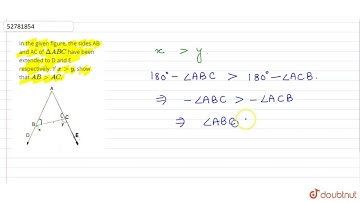 52781854
In the given figure, the sides AB
and AC of ΔABC have been
extended to D and E
respectively. If x > y, show
that AB > AC.
A
B
C
x
y
D
E
x > y
180° - ∠ABC > 180° - ∠ACB.
⇒ -∠ABC > -∠ACB
⇒ ∠ABC
doubtnut